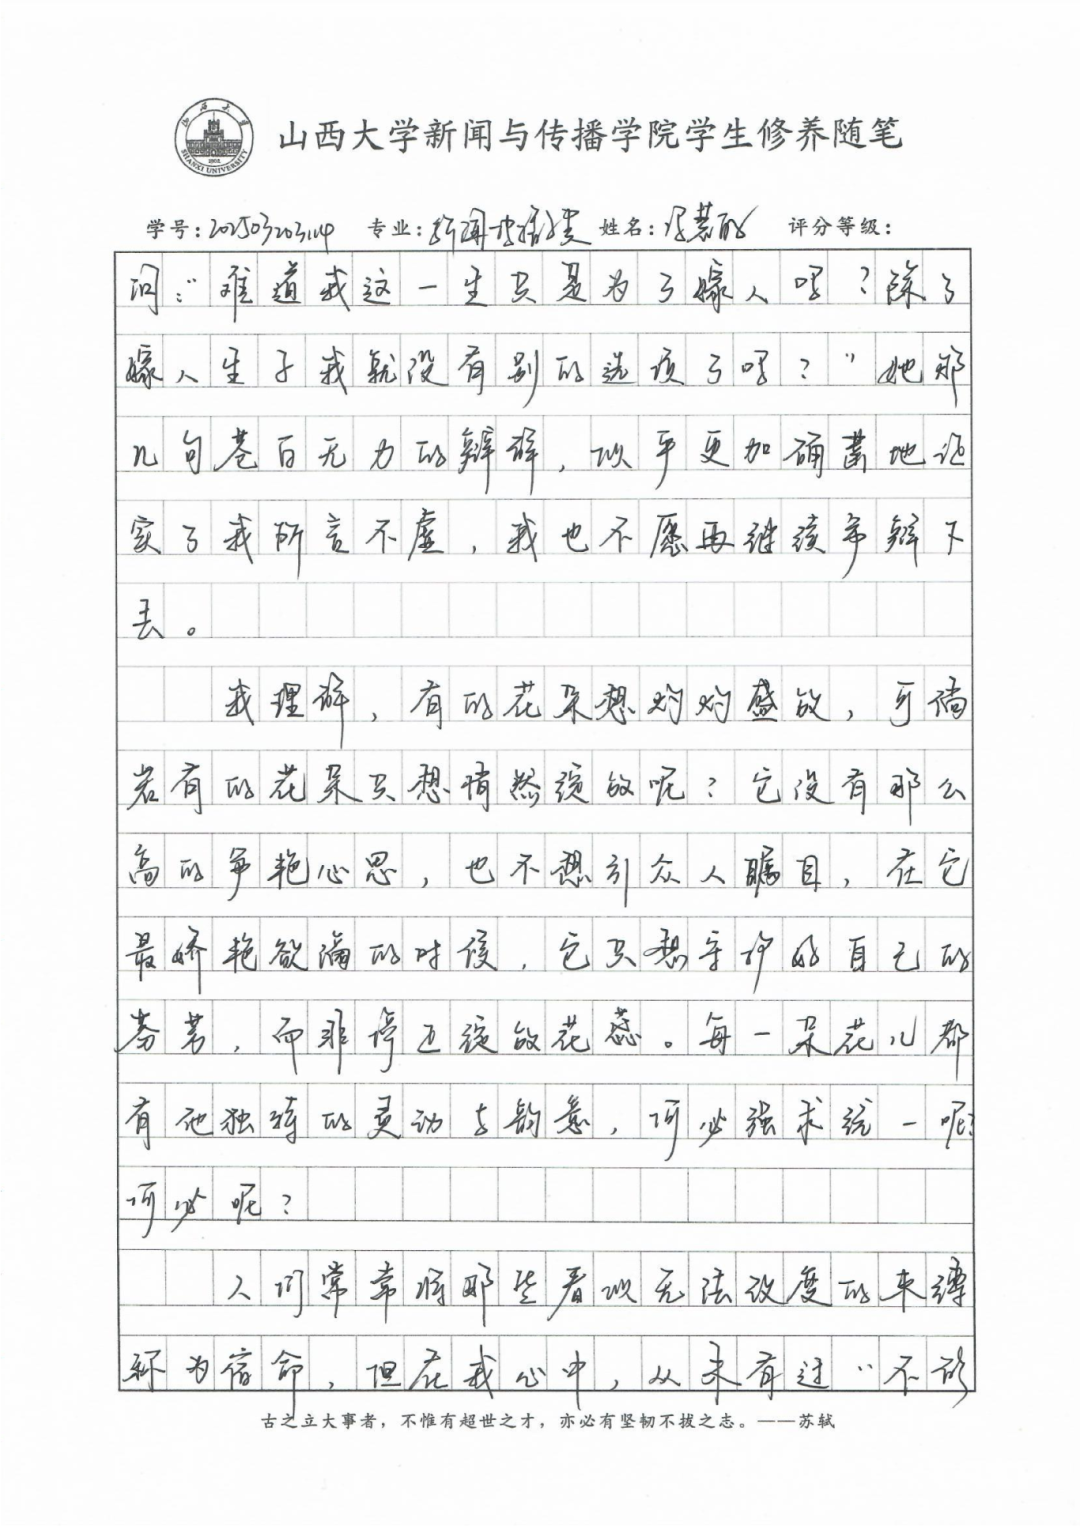 山西大学
SHANXI UNIVERSITY
1902
山西大学新闻与传播学院学生修养随笔
学号: 专业:新闻传播类 姓名:慧 评分等级:
问:“难道我这一生只是为了嫁人吗?除了
嫁人生子我就没有别的选项了吗?”她那
几句苍白无力的辩解,似乎更加确凿地证
实了我所言不虚,我也不愿再继续争辩下
去。
我理解,有的花朵想灼灼盛放,可倘
若有的花朵只想悄然绽放呢?它没有那么
高的争艳心思,也不想引众人瞩目,在它
最娇艳欲滴的时候,它只想守护好自己的
芬芳,而非停止绽放花蕊。每一朵花儿都
有他独特的灵动与韵意,何必强求统一呢?
何必呢?
人们常常将那些看似无法改变的束缚
称为宿命,但在我心中,从未有过“不能
古之立大事者,不惟有超世之才,亦必有坚韧不拔之志。——苏轼